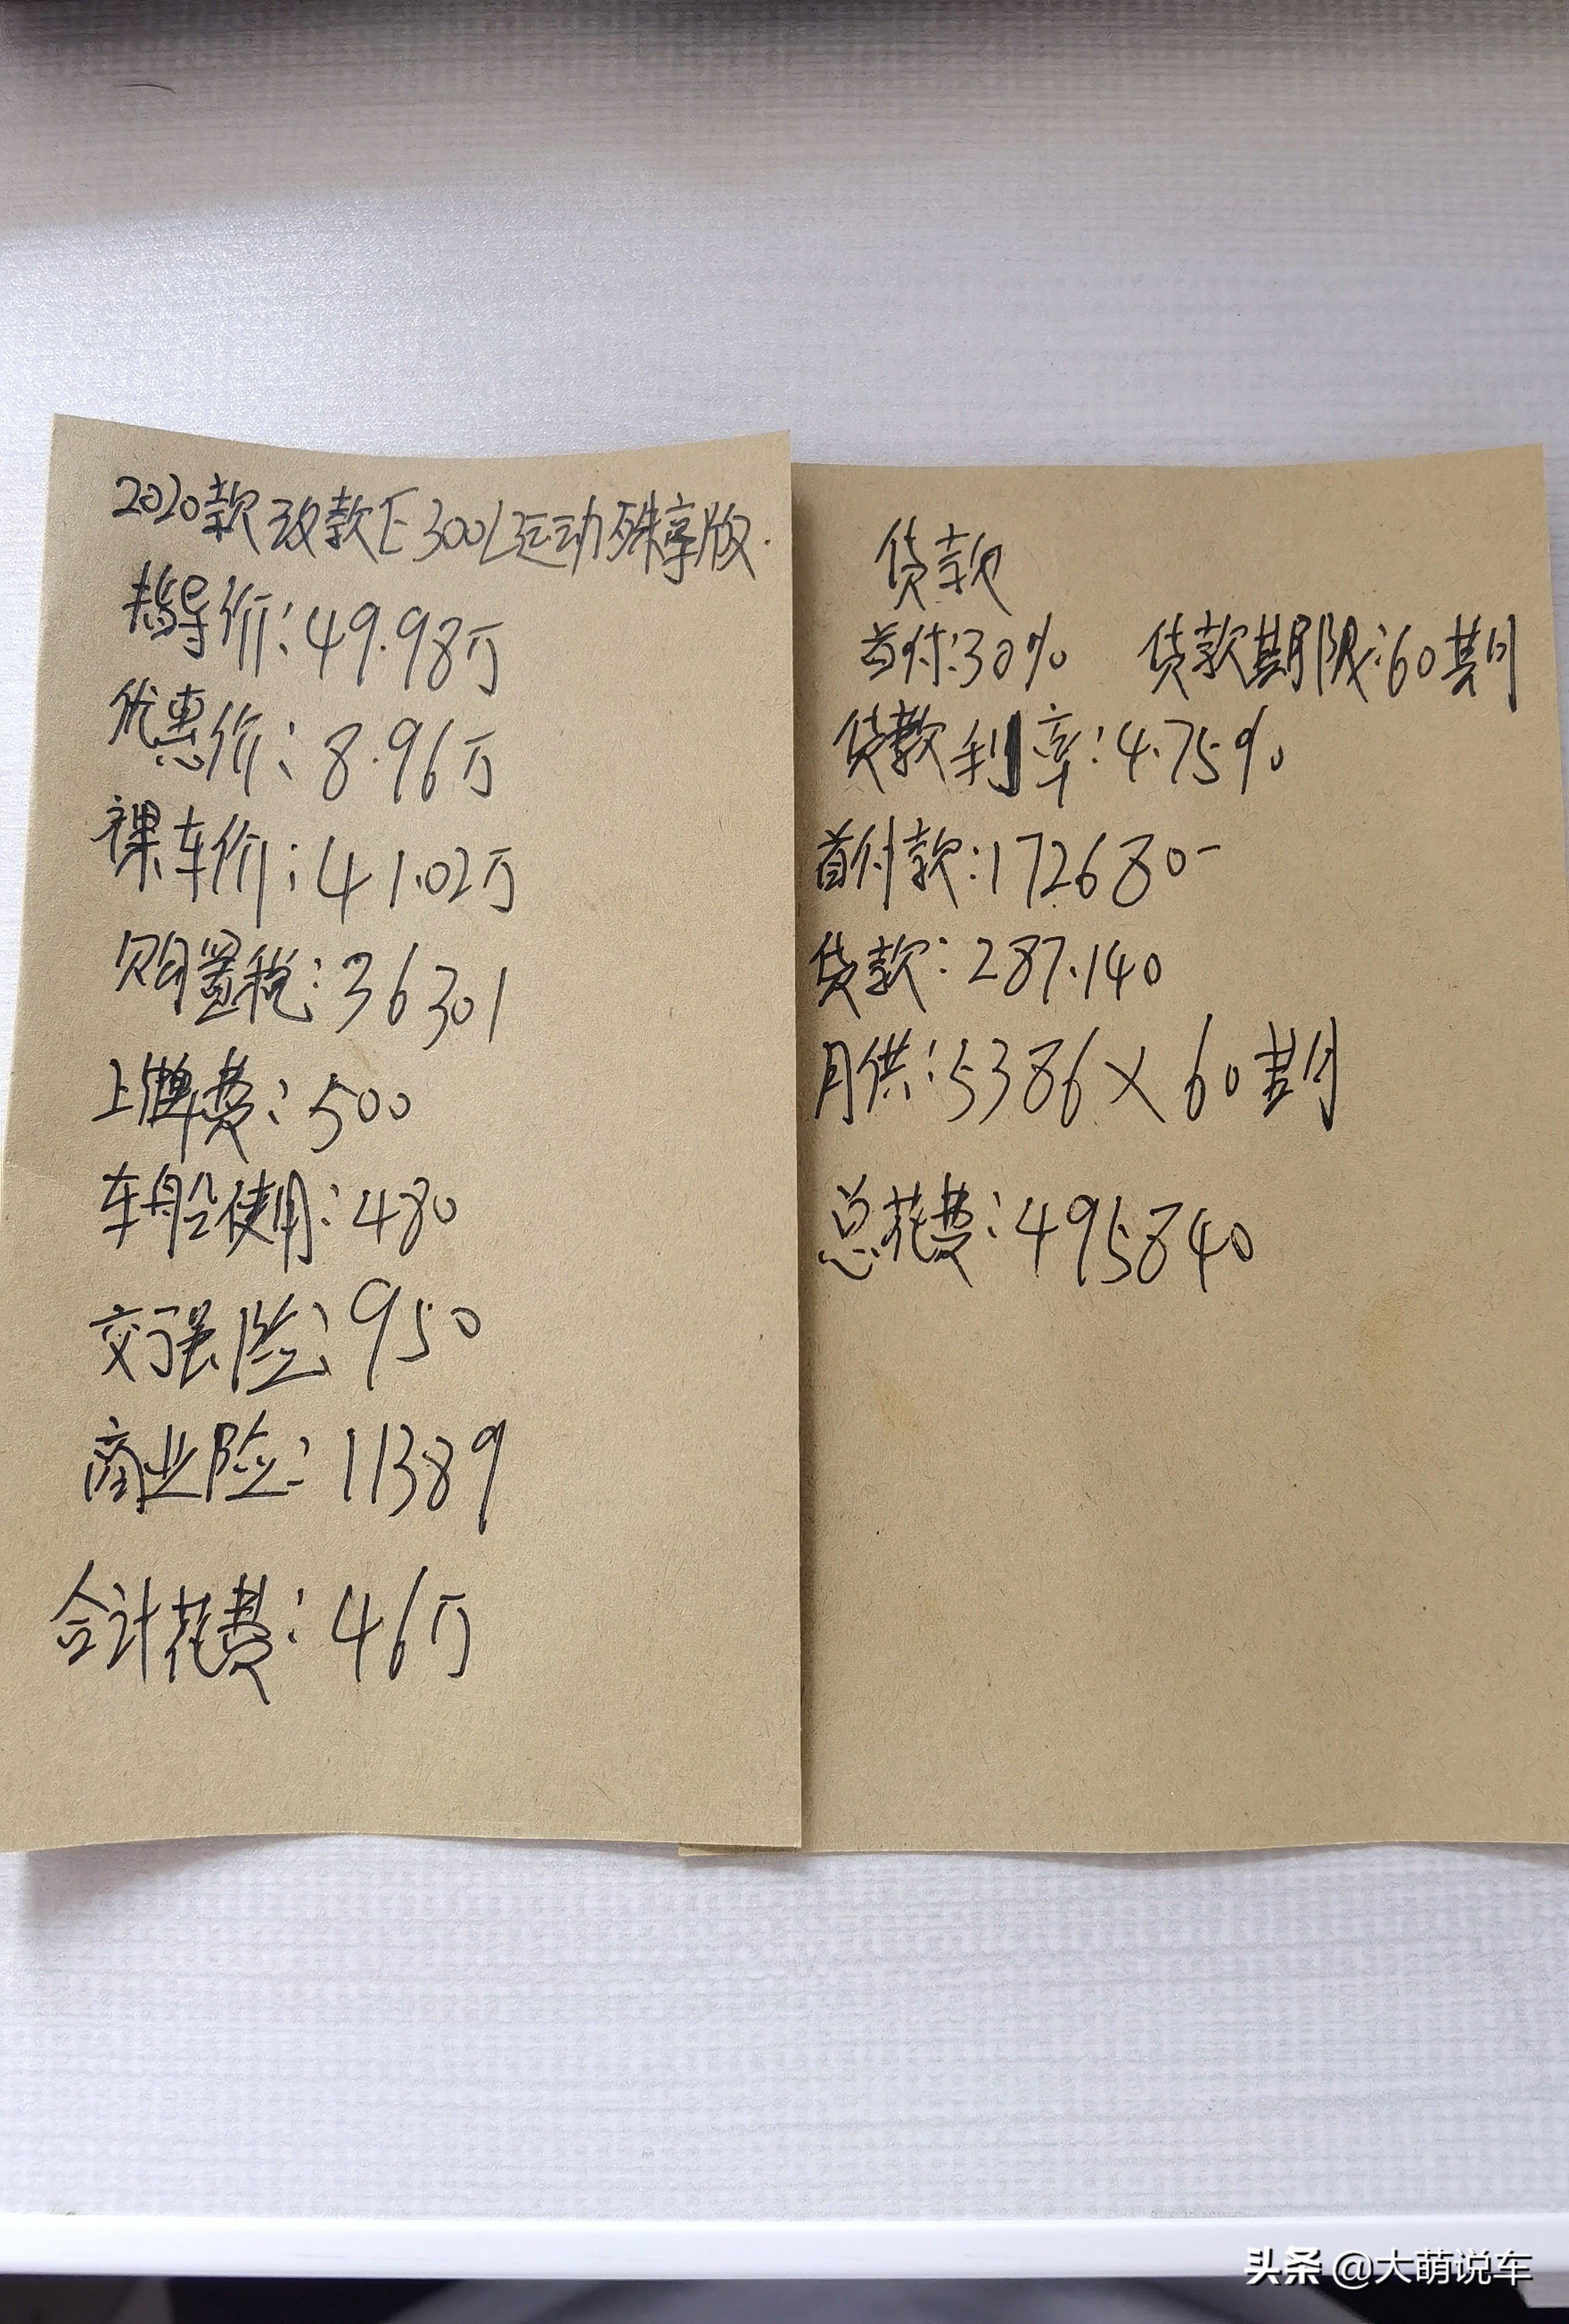 2020款改款E300L运动殊享版.
指导价:49.98万
优惠价:8.96万
裸车价:41.02万
购置税:36301
上牌费:500
车船使用:480
交强险:950
商业险:11389
合计花费:46万
贷款
首付:30% 贷款期限:60期
贷款利率:4.75%
首付款:172680-
贷款:287.140
月供:5386×60期
总花费:495840
头条 @大萌说车